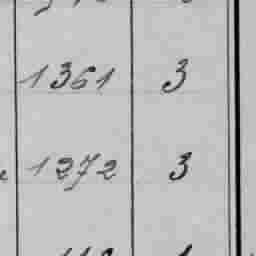 1361 3
1272 3